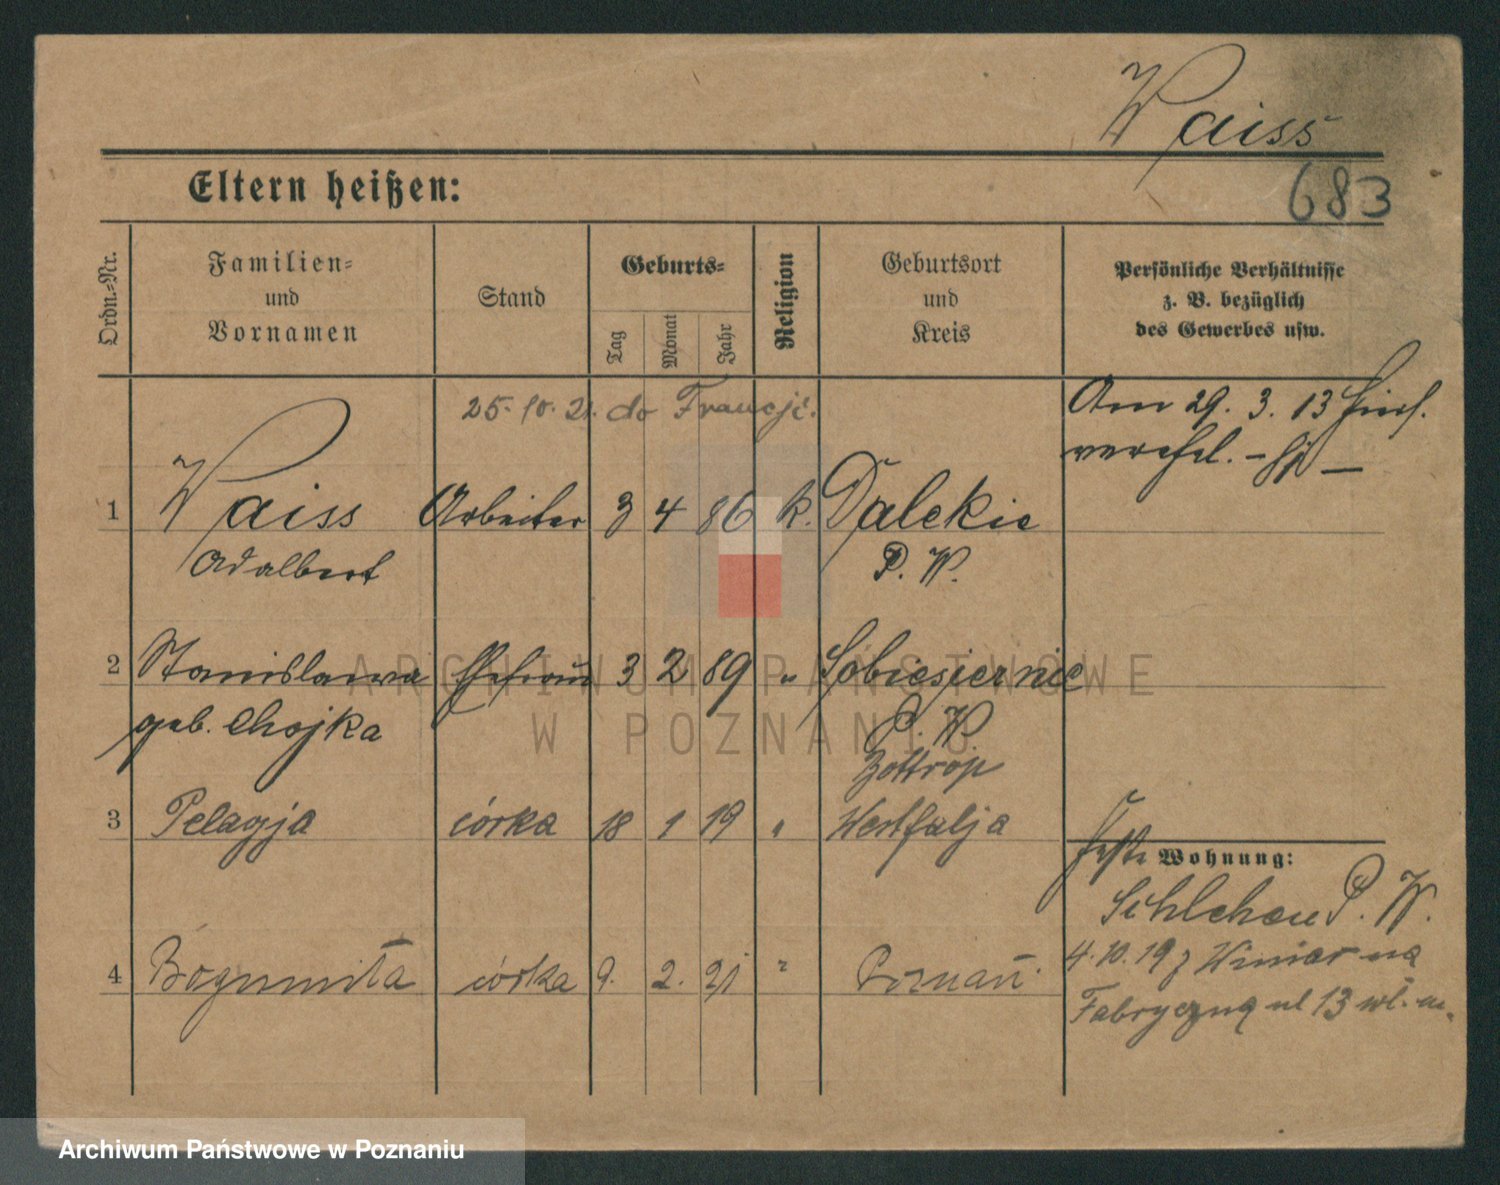 Waiss
Eltern heißen:
683
Ordn.-Nr.
Familien-
und
Vornamen
Stand
Geburts-
Tag
Monat
Jahr
Religion
Geburtsort
und
Kreis
Persönliche Verhältnisse
z. B. bezüglich
des Gewerbes usw.
25. 10. 21. do Francji.
Am 29. 3. 13 hier
verehel.
1 Waiss Arbeiter 3 4 86 k. Dalekie
Adalbert P. W.
2 Stanislawa Ehefrau 3 2 89 " Sobiesiernie
geb. Chojka P. W.
Bottrop
3 Pelagja córka 18 1 19 " Westfalja
Feste Wohnung:
Schlehen P. W.
4 Bogumiła córka 9. 2. 21 " Poznań.
4.10.19 z Winiar na
Fabryczną ul 13 wł. m.
ARCHIWUM PAŃSTWOWE
W POZNANIU
Archiwum Państwowe w Poznaniu